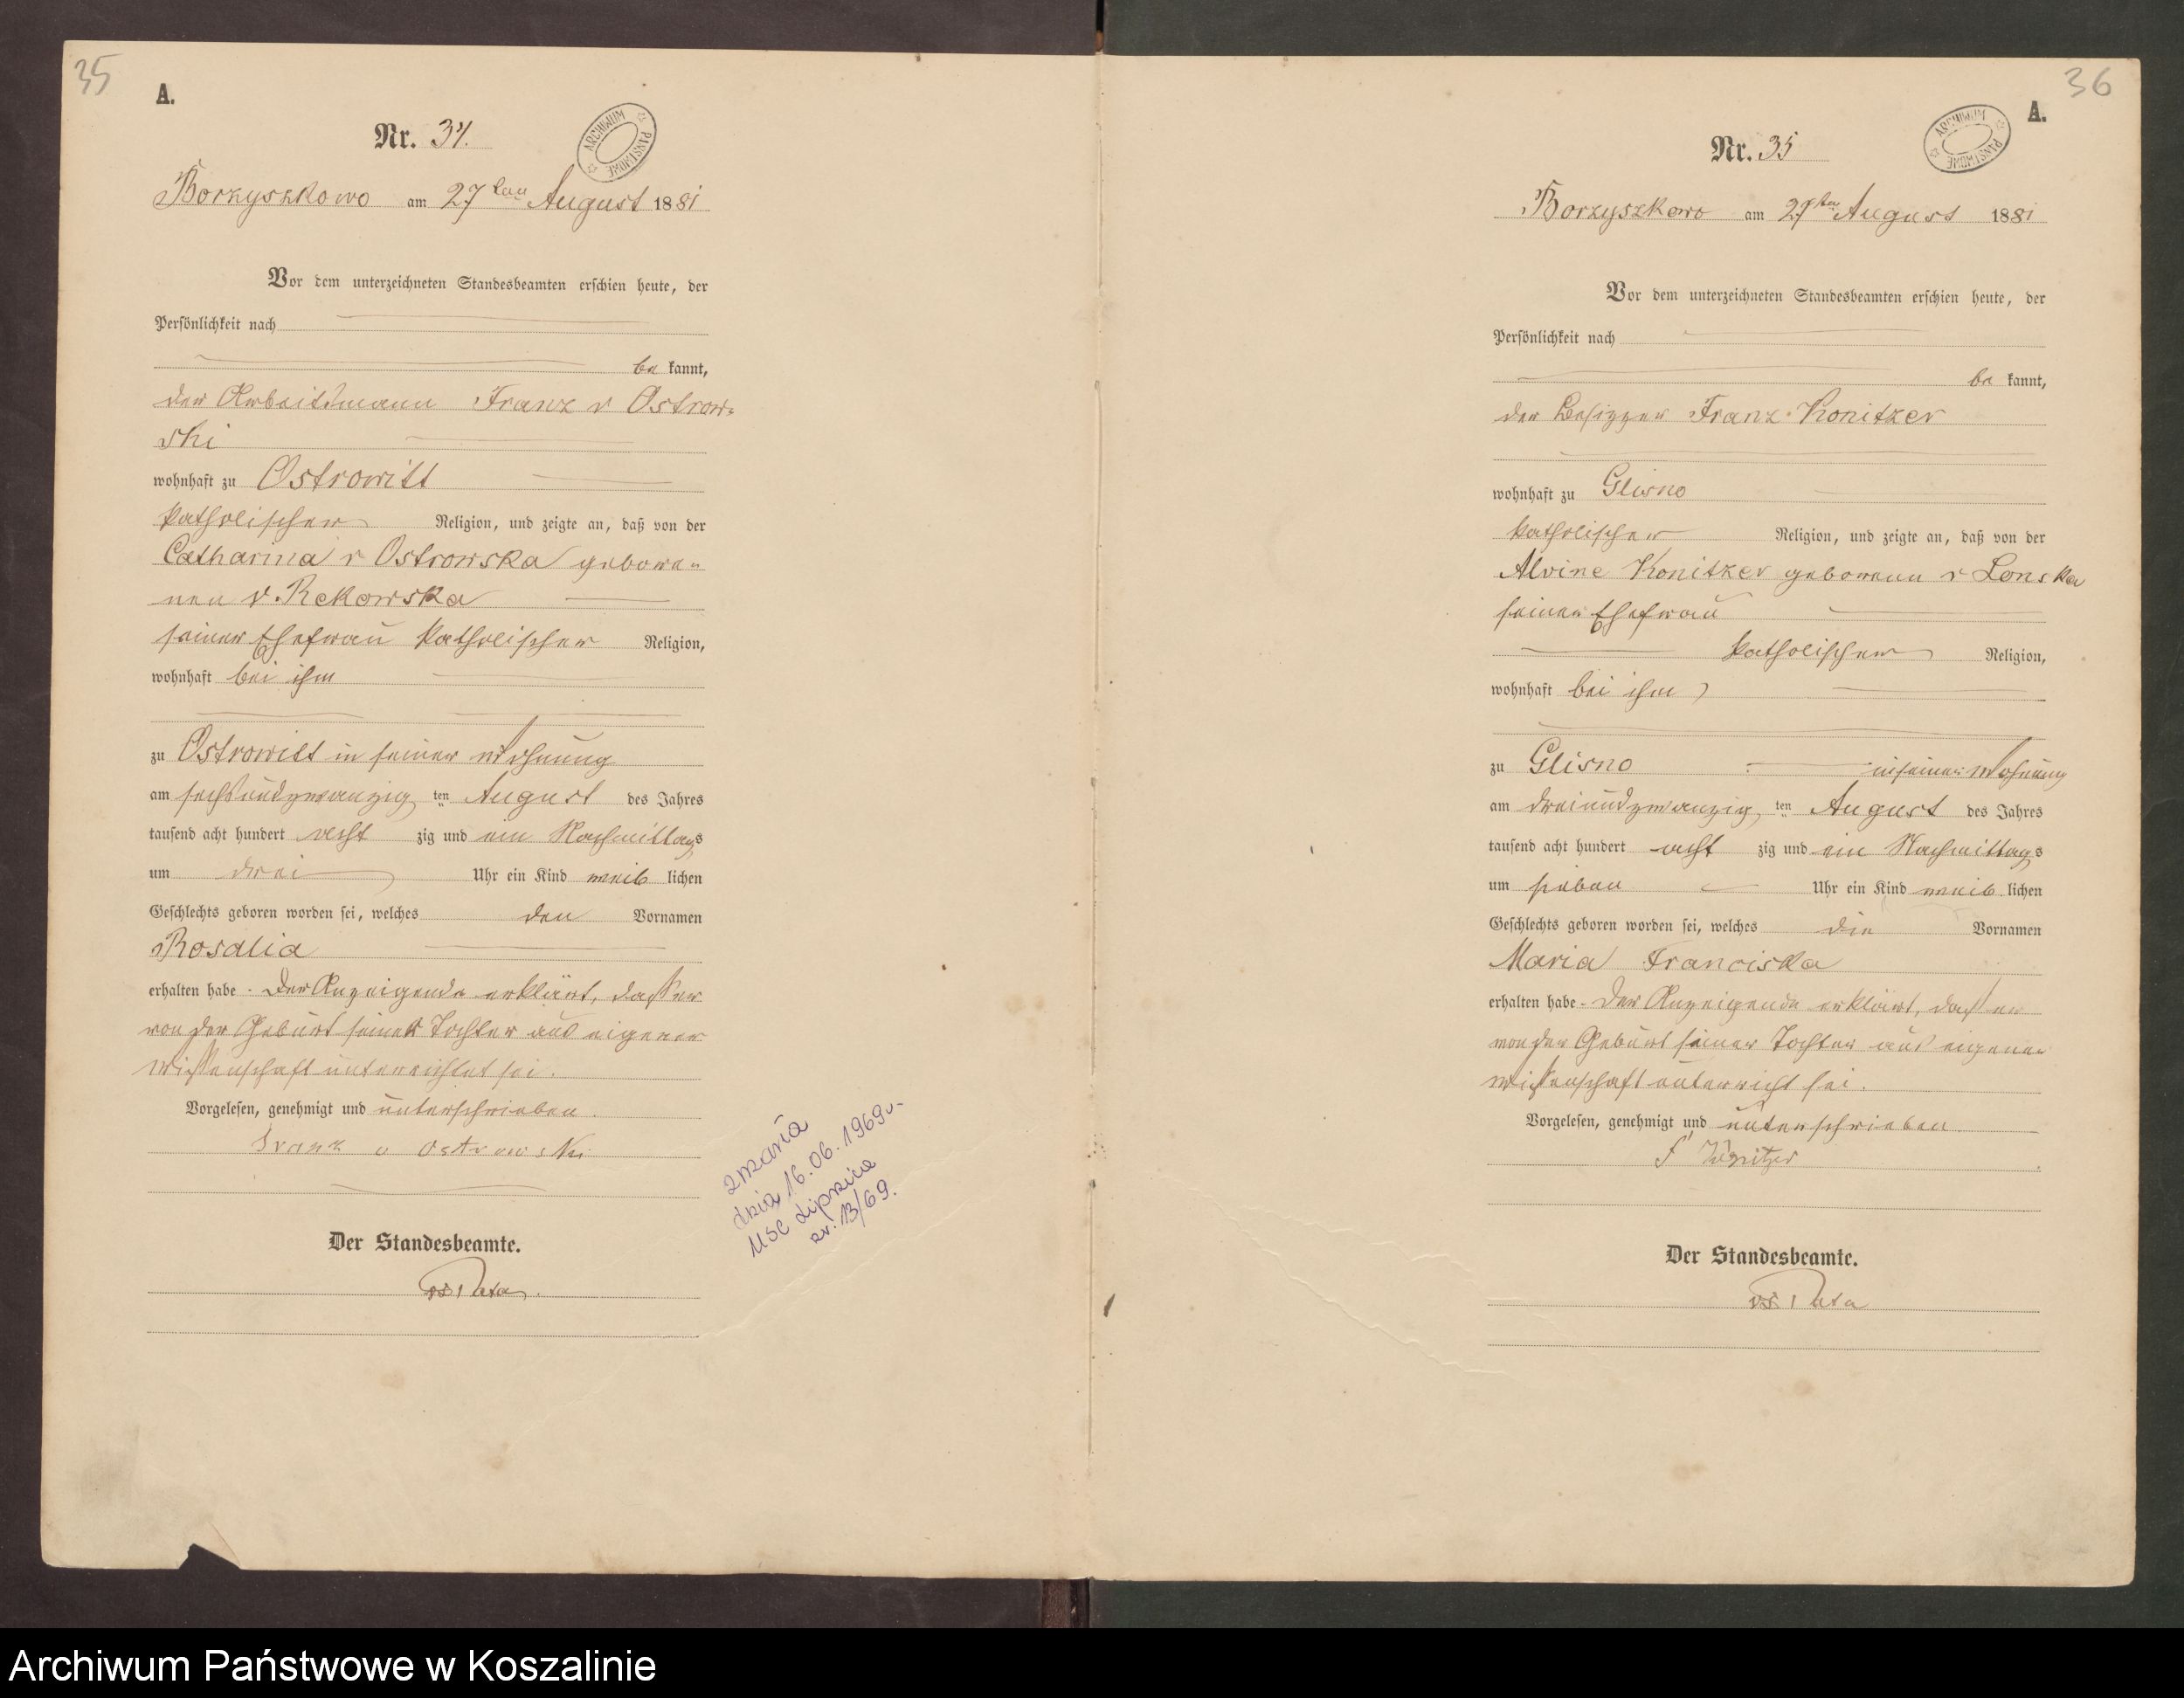 35
A.
ARCHIWUM PAŃSTWOWE
Nr. 34.
Borzyszkowo am 27ten August 1881
Vor dem unterzeichneten Standesbeamten erschien heute, der
Persönlichkeit nach
be kannt,
der Arbeitsmann Franz v Ostrow-
ski
wohnhaft zu Ostrowitt
katholischer Religion, und zeigte an, daß von der
Catharina v Ostrowska gebore-
nen v. Rekowska
seiner Ehefrau katholischer Religion,
wohnhaft bei ihm
zu Ostrowitt in seiner Wohnung
am sechsundzwanzig ten August des Jahres
tausend acht hundert acht zig und ein Nachmittags
um drei Uhr ein Kind weib lichen
Geschlechts geboren worden sei, welches den Vornamen
Rosalia
erhalten habe. Der Anzeigende erklärt, daß er
von der Geburt seiner Tochter aus eigener
Wissenschaft unterrichtet sei.
Vorgelesen, genehmigt und unterschrieben.
Franz v Ostrowski
Der Standesbeamte.
zmarła
dnia 16.06.1969r-
USC Lipnica
nr. 13/69.
36
A.
ARCHIWUM PAŃSTWOWE
Nr. 35
Borzyszkowo am 27ten August 1881
Vor dem unterzeichneten Standesbeamten erschien heute, der
Persönlichkeit nach
be kannt,
der Besitzer Franz Konitzer
wohnhaft zu Glisno
katholischer Religion, und zeigte an, daß von der
Alvine Konitzer geborenen v Lonska
seiner Ehefrau
katholischer Religion,
wohnhaft bei ihm
zu Glisno in seiner Wohnung
am dreiundzwanzig ten August des Jahres
tausend acht hundert acht zig und ein Nachmittags
um sieben Uhr ein Kind weib lichen
Geschlechts geboren worden sei, welches die Vornamen
Maria Franciska
erhalten habe. Der Anzeigende erklärt, daß er
von der Geburt seiner Tochter aus eigener
Wissenschaft unterricht sei.
Vorgelesen, genehmigt und unterschrieben
F Konitzer
Der Standesbeamte.
Archiwum Państwowe w Koszalinie